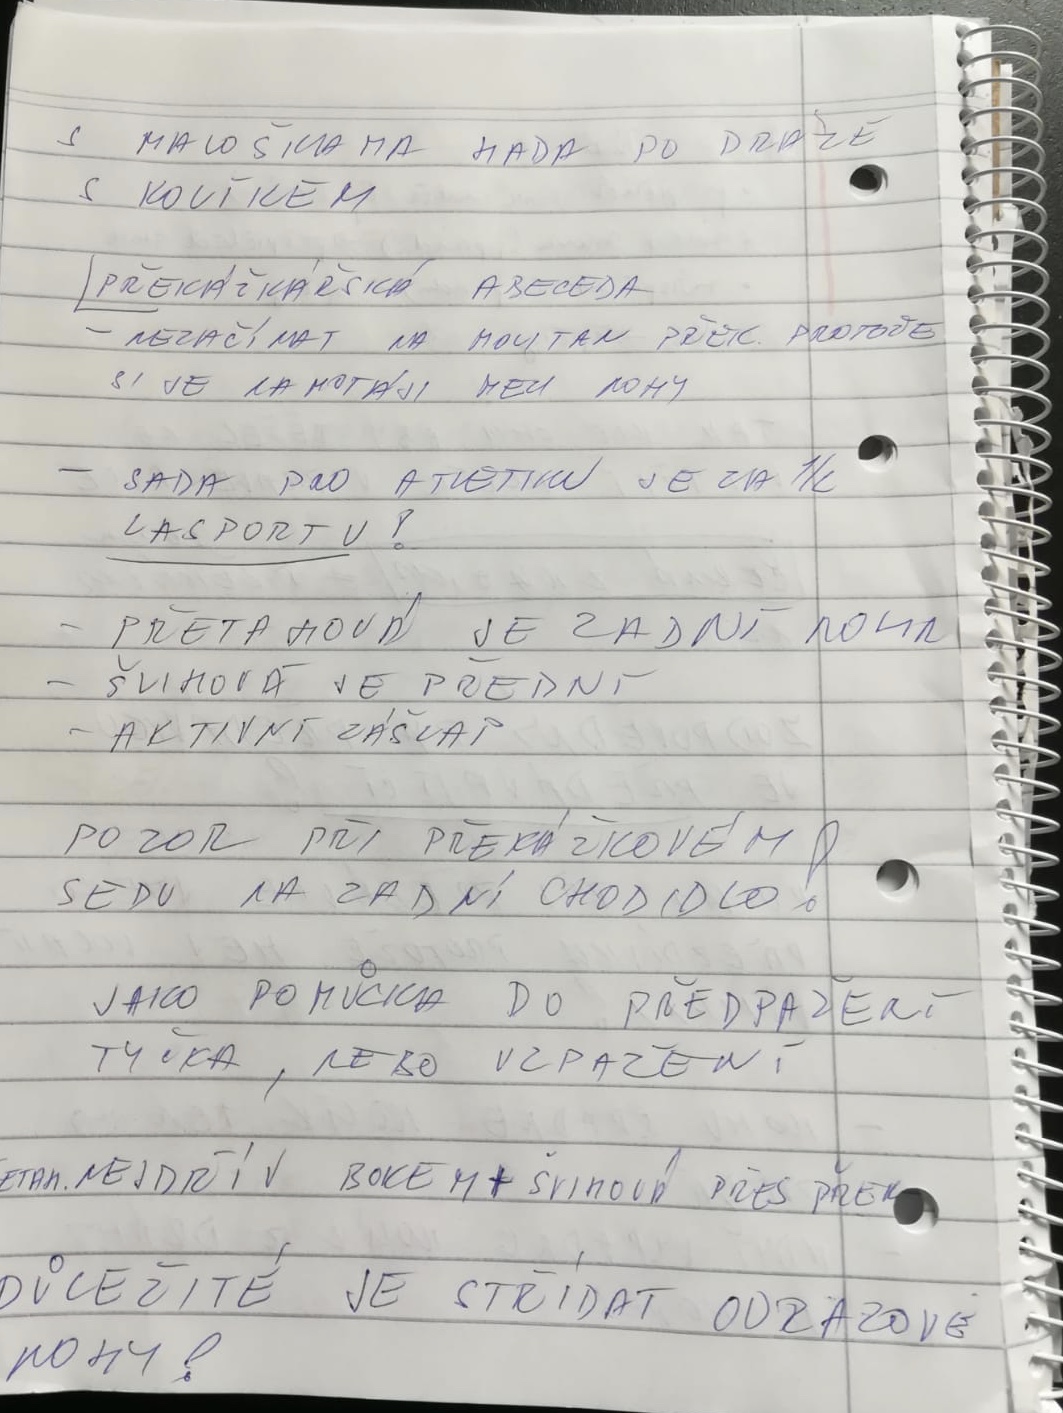 S MALOŠKAMA HADA PO DRAZE
S KOLÍKEM
PŘEKÁŽKÁŘSKÁ ABECEDA
- NEZAČÍNAT NA MOLITAN PŘEK. PROTOŽE
SI JE NAMOTÁJI MEZI NOHY
- SADA PRO ATLETIKU JE ZA 11K
LASPORTU!
- PŘETAHOVÁ JE ZADNÍ NOHA
- ŠVIHOVÁ JE PŘEDNÍ
- AKTIVNÍ ZÁŠLAP
POZOR PŘI PŘEKÁŽKOVÉM
SEDU NA ZADNÍ CHODIDLO!
JAKO POMŮCKA DO PŘEDPAŽENÍ
TYČKA, NEBO VZPAŽENÍ
ETAH. NEJDŘÍV BOKEM + ŠVIHOVÁ PŘES PŘEK
DŮLEŽITÉ JE STŘÍDAT ODRAZOVÉ
NOHY!